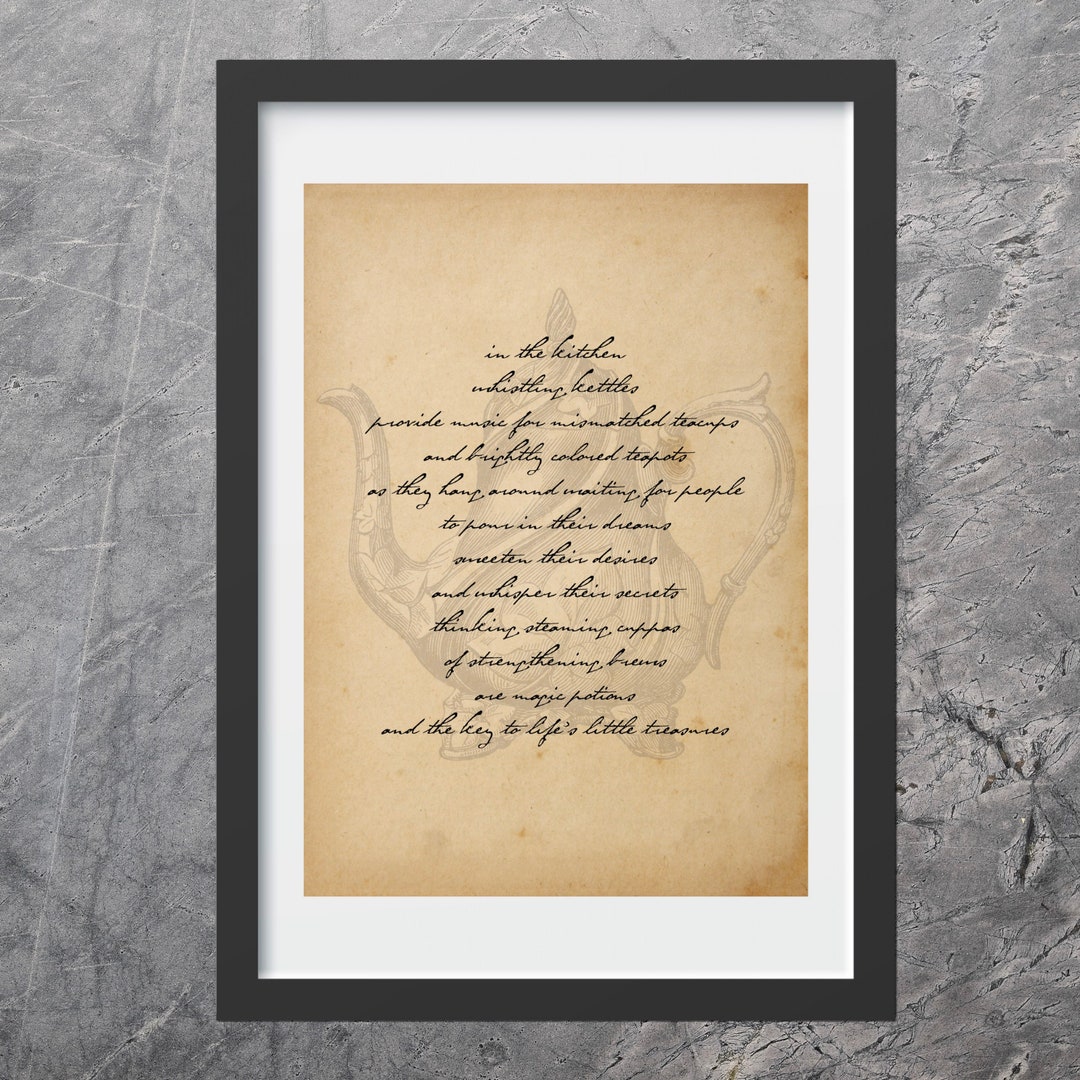 in the kitchen
whistling kettles
provide music for mismatched teacups
and brightly colored teapots
as they hang around waiting for people
to pour in their dreams
sweeten their desires
and whisper their secrets
thinking steaming cuppas
of strengthening brews
are magic potions
and the key to life's little treasures